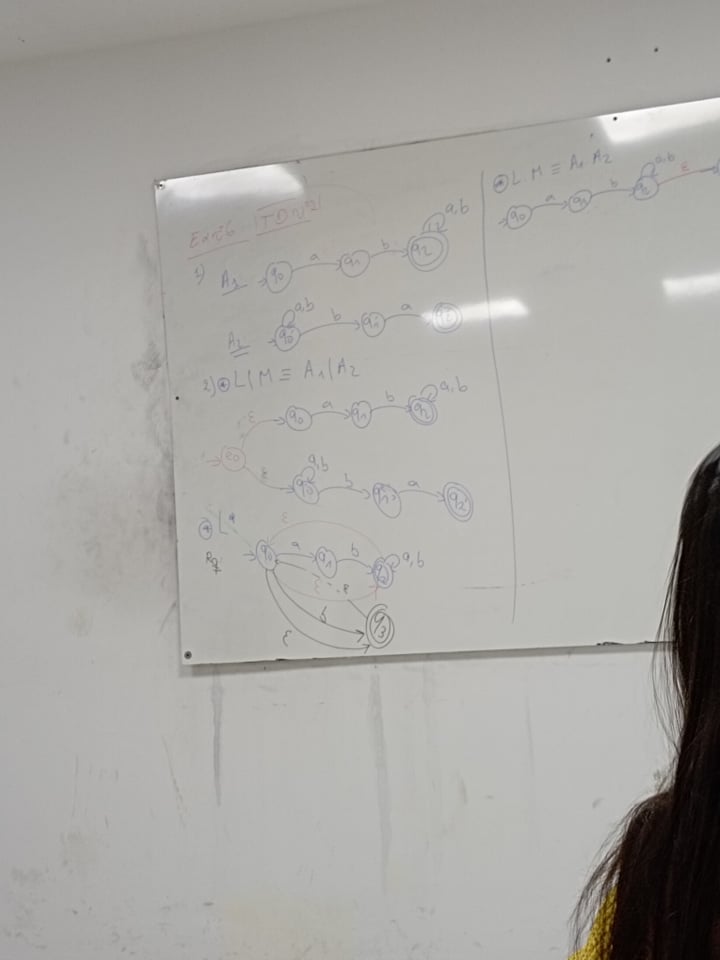 Exo 6 TD N°2
1)
A₁ q₀ a q₁ b q₂ a,b
A₂ q₀' a,b b q₁' a q₂'
2) ⊛ L|M ≡ A₁|A₂
e₀ ε q₀ a q₁ b q₂ a,b
ε q₀' a,b b q₁' a q₂'
⊛ L*
ε
q₀ a q₁ b q₂ a,b
ε
b q₃
ε
⊛ L.M ≡ A₁.A₂
q₀ a q₁ b q₂ a,b ε